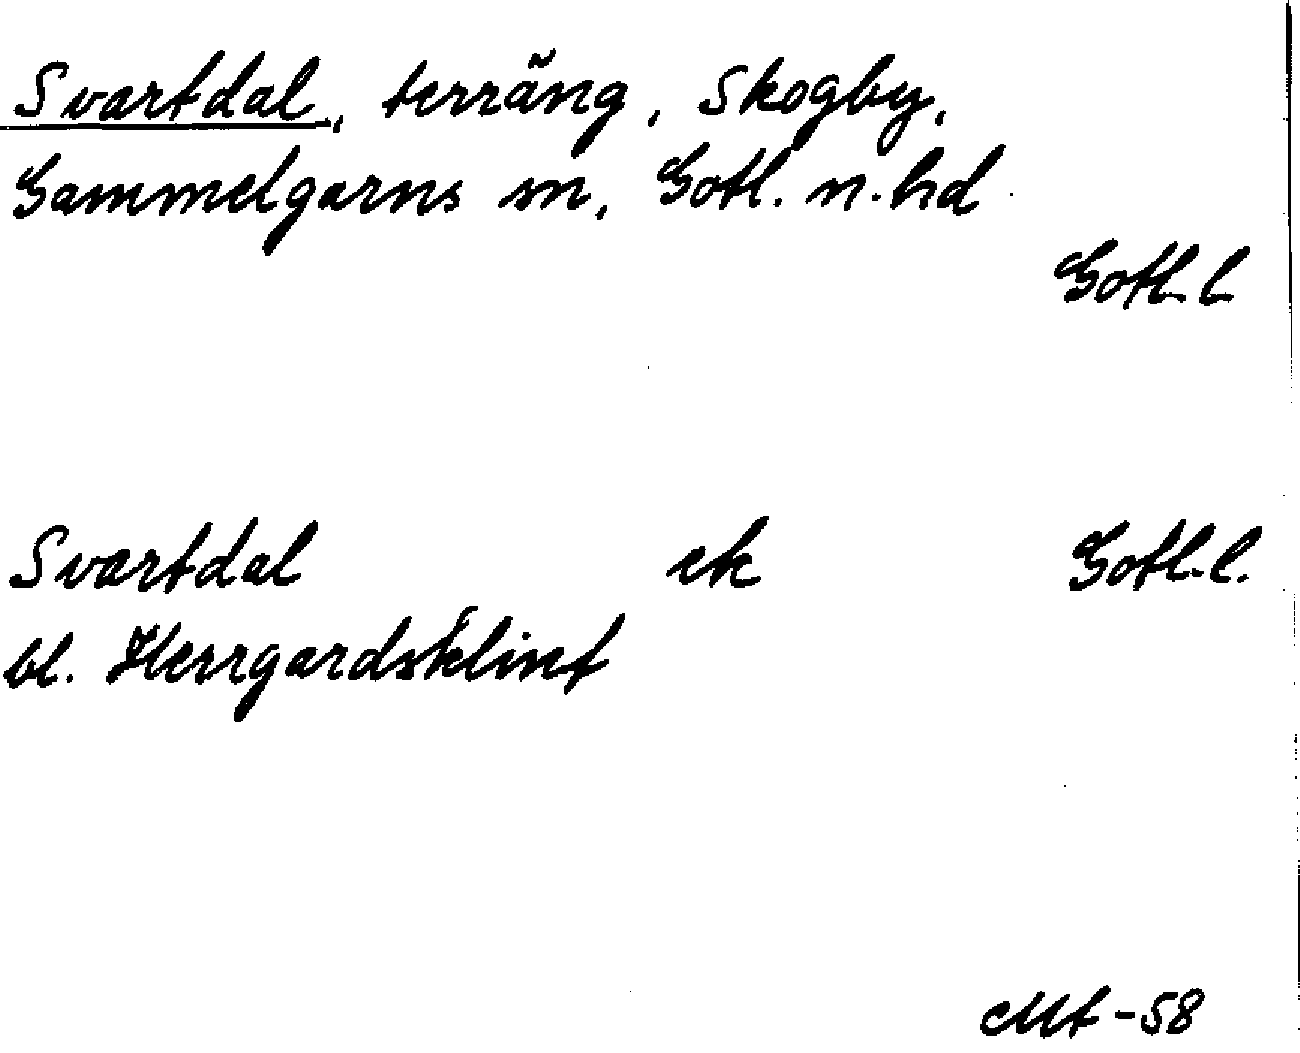 Svartdal, terräng, Skogby,
Gammelgarns sn, Gotl. n. hd
Gotl. l
Svartdal ek Gotl. l.
bl. Herrgardsklint
Mt -58